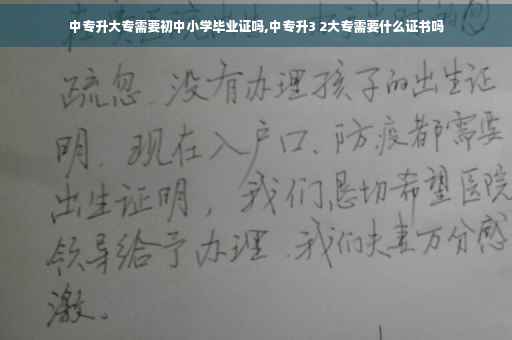 中专升大专需要初中小学毕业证吗,中专升3 2大专需要什么证书吗
疏忽、没有办理孩子的出生证
明、现在入户口、防疫都需要
出生证明，我们恳切希望医院
领导给予办理、我们夫妻万分感
激。